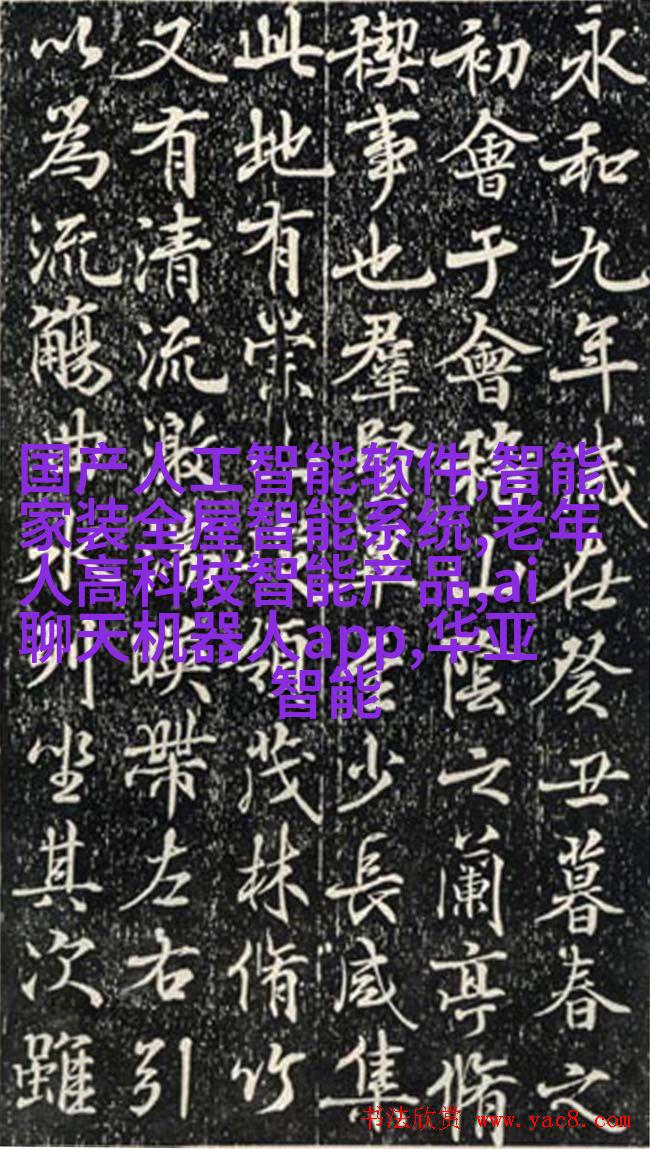 永和九年歲在癸丑暮春之
初會于會稽山陰之蘭亭脩
稧事也羣賢至少長咸集
此地有崇領茂林脩竹
又有清流激映帶左右引
以為流觴曲水列坐其次雖
国产人工智能软件,智能
家装全屋智能系统,老年
人高科技智能产品,ai
聊天机器人app,华亚
智能
书法欣赏 www.yac8.com